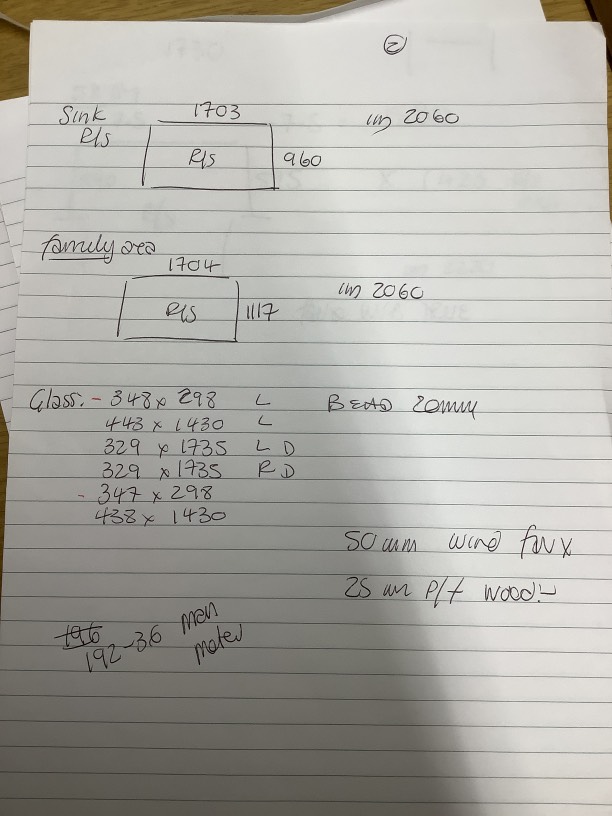 ②
Sink 1703 2060
R/S R/S 960
family area
1704 2060
R/S 1117
Glass:- 348 x 298 L BEAD 20mm
443 x 1430 L
329 x 1735 L D
329 x 1735 R D
- 347 x 298
438 x 1430
50 mm wind
25 P/f wood:-
196 men
192-36